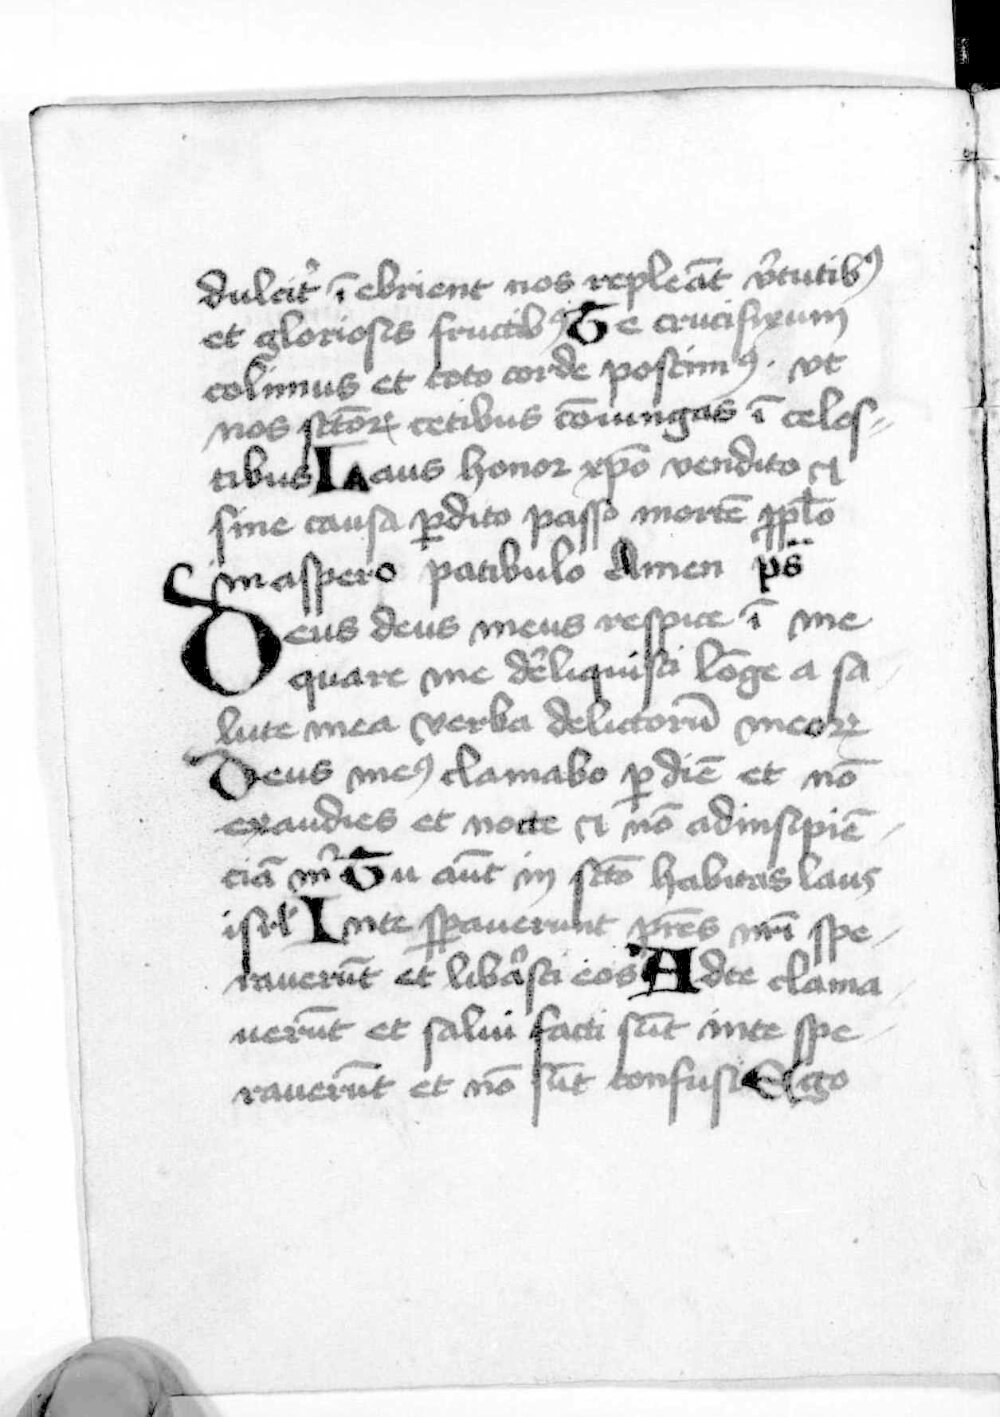 dulcit᷑ ī ebrient nos repleāt v᷑tutibꝯ
et gloriosis fructibꝯ Te crucifixum
colimus et toto corde poscimꝯ . vt
nos sctōꝝ cetibus cōiungas ī celes-
tibus Laus honor xp̄o vendito
sine causa ꝑdito passo mortē ꝓ pl̄o
in aspero patibulo Amen ps̄
Deus deus meus respice ī me
quare me de᷑liquisti lōge a sa
lute mea verba delictorū meoꝝ
Deus meꝯ clamabo ꝑ diē et nō
exaudies et nocte et nō ad insipiē-
ciā m᷑ Tu aūt in sctō habitas laus
isrl̄ In te sꝑauerunt pr̄es nr̄i spe-
rauerūt et liba᷑sti eos Ad te clama
uerūt et salui facti sūt in te spe
rauerūt et nō sūt confusi Ego